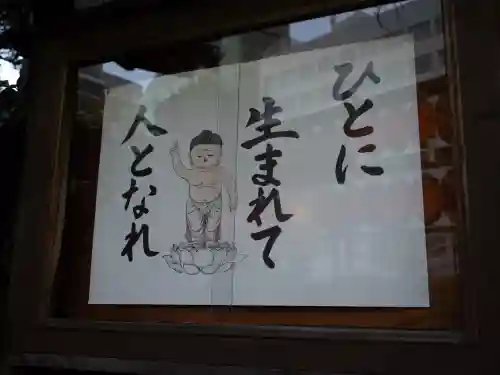 ひとに
生まれて
人となれ